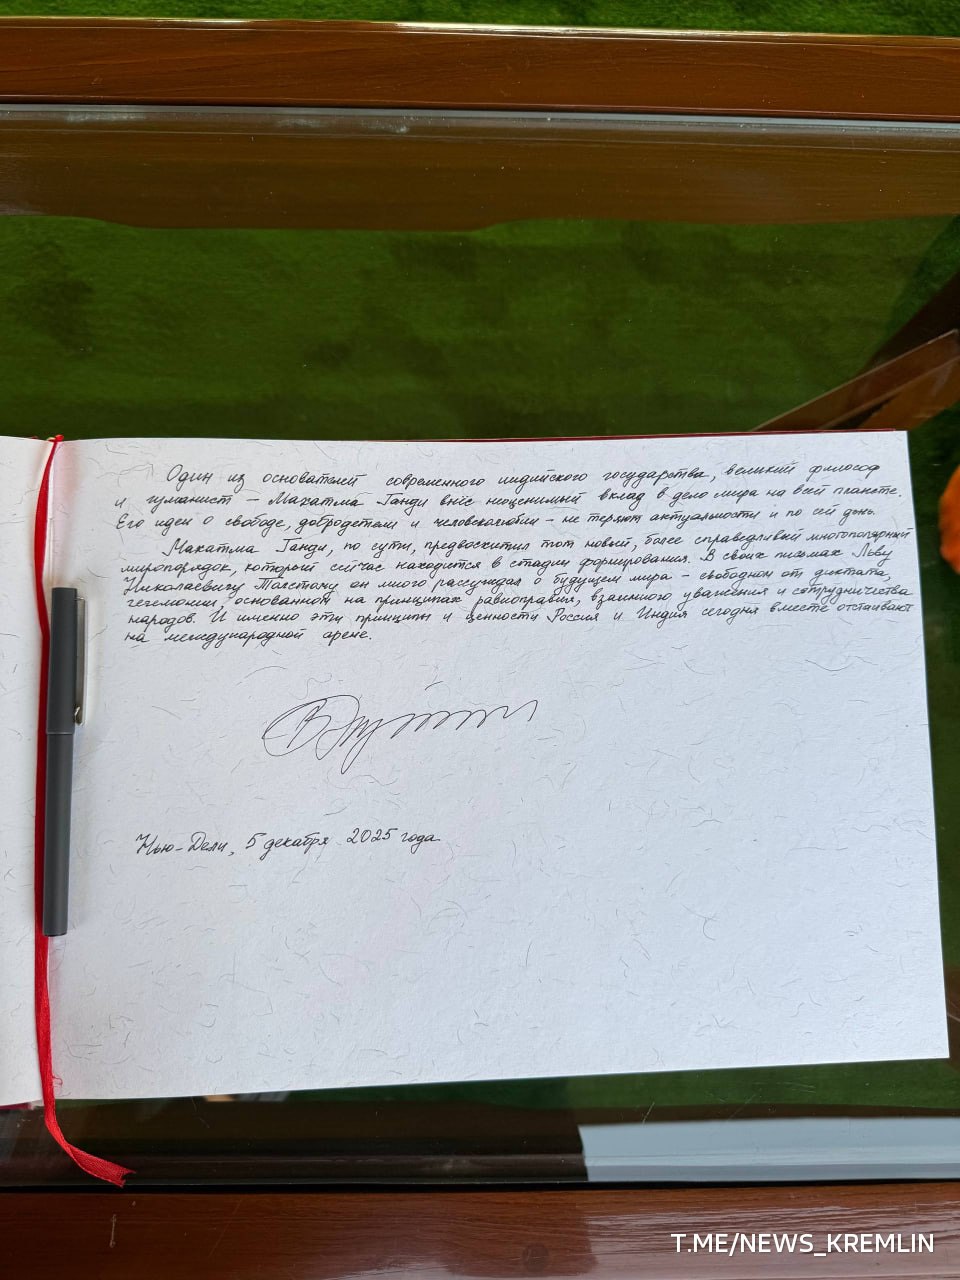 Один из основателей современного индийского государства, великий философ
и гуманист – Махатма Ганди внёс неоценимый вклад в дело мира на всей планете.
Его идеи о свободе, добродетели и человеколюбии – не теряют актуальности и по сей день.
Махатма Ганди, по сути, предвосхитил тот новый, более справедливый многополярный
миропорядок, который сейчас находится в стадии формирования. В своих письмах Льву
Николаевичу Толстому он много рассуждал о будущем мира – свободном от диктата,
гегемонии, основанном на принципах равноправия, взаимного уважения и сотрудничества
народов. И именно эти принципы и ценности Россия и Индия сегодня вместе отстаивают
на международной арене.
Нью-Дели, 5 декабря 2025 года
T.ME/NEWS_KREMLIN